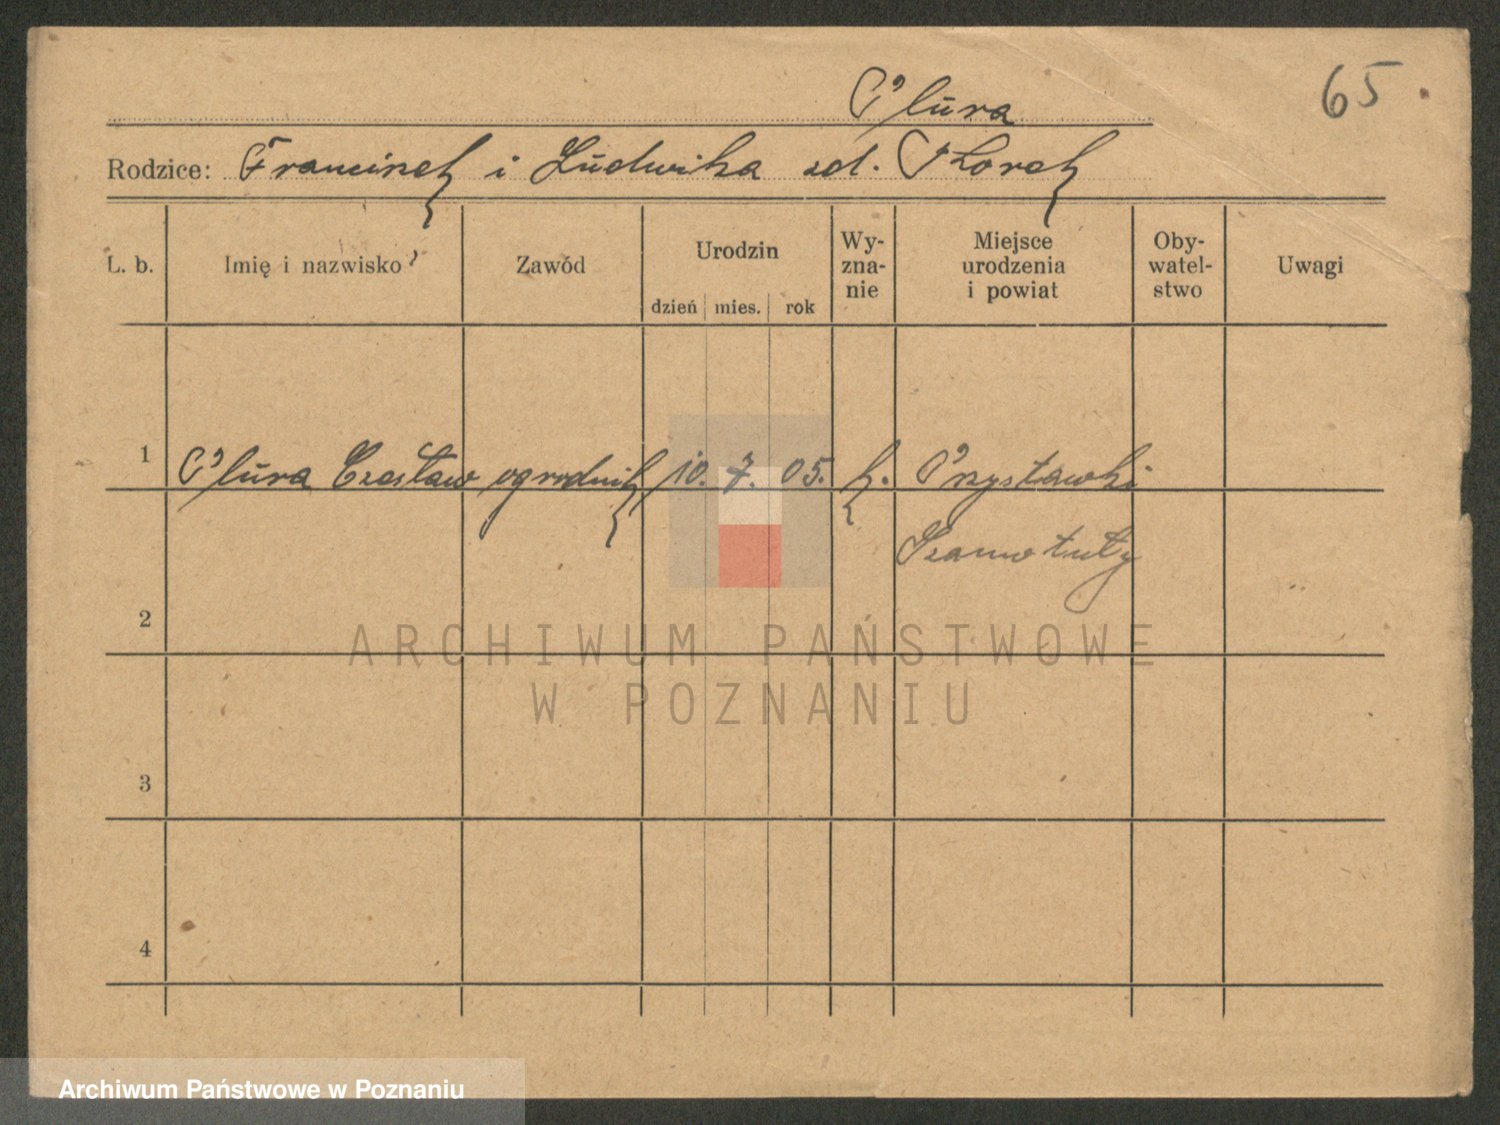 65.
Plura
Rodzice: Franciszek i Ludwika zd.
L. b. Imię i nazwisko Zawód Urodzin dzień mies. rok Wy- zna- nie Miejsce urodzenia i powiat Oby- watel- stwo Uwagi
1 Plura Czesław ogrodnik 10. 7. 05. k. Przystawki
Szamotuły
2
ARCHIWUM PAŃSTWOWE
W POZNANIU
3
4
Archiwum Państwowe w Poznaniu